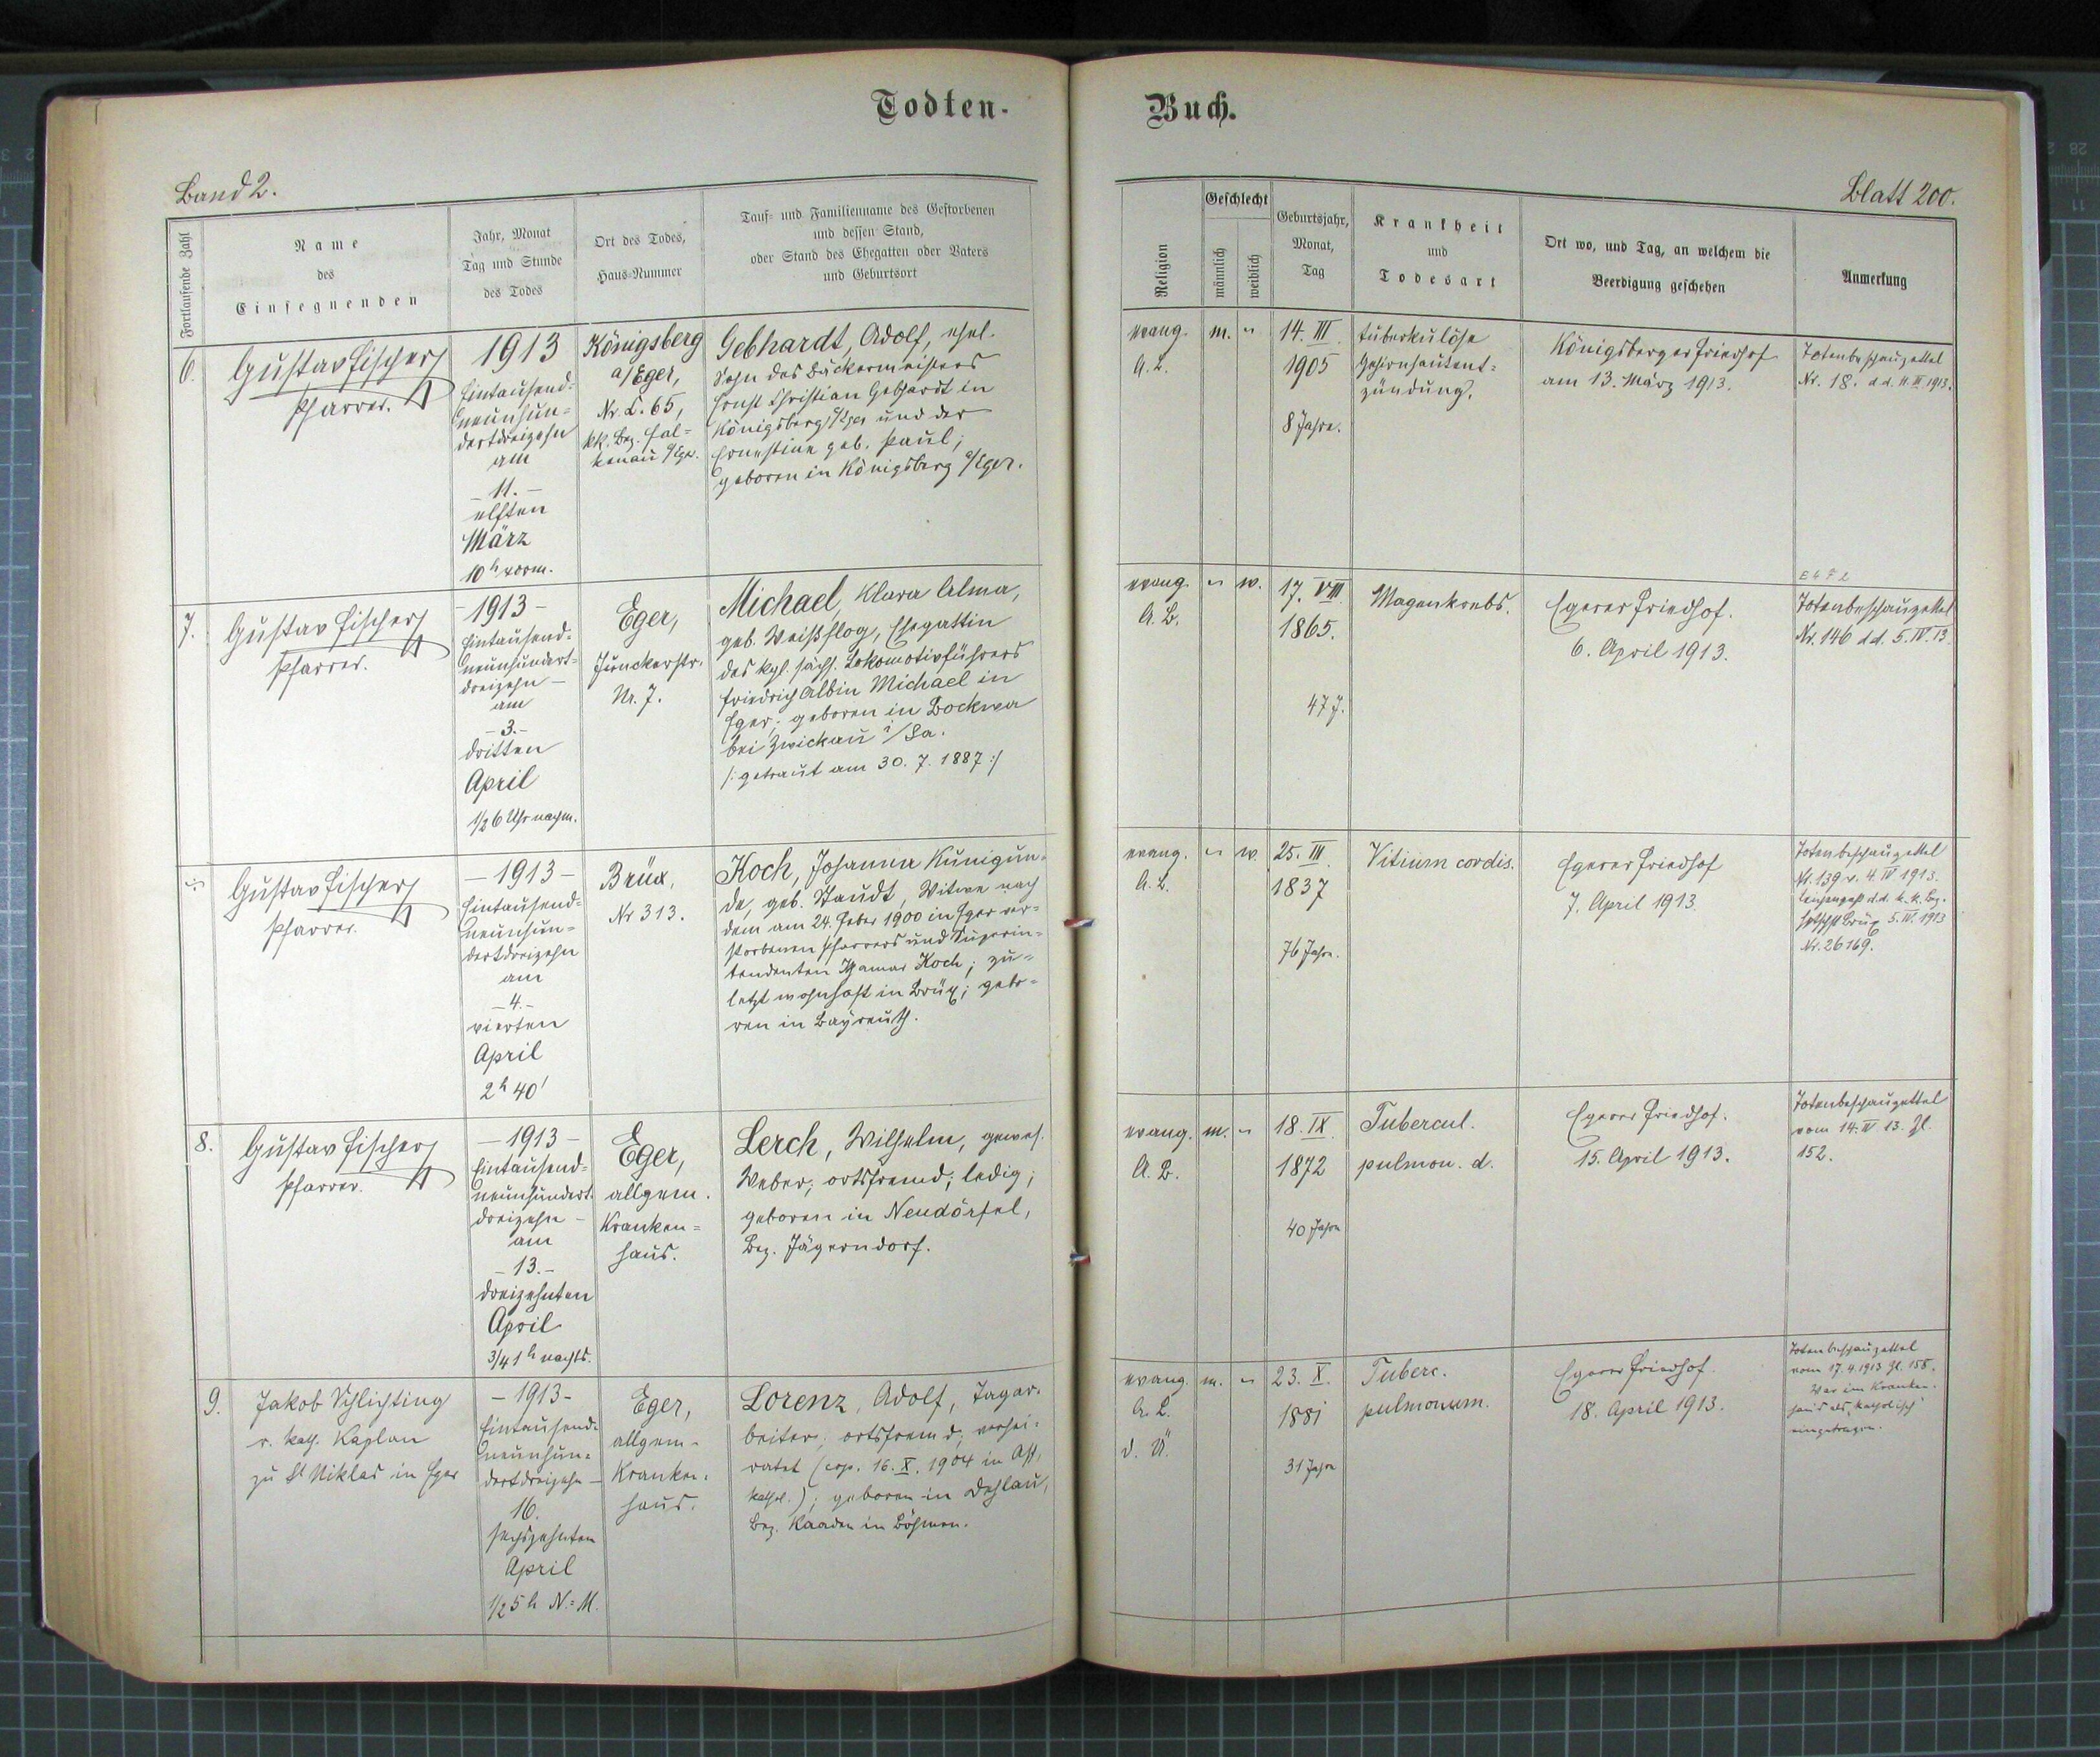 Todten-
Buch.
Band 2.
Blatt 200.
Fortlaufende Zahl
Name
des
Einsegnenden
Jahr, Monat
Tag und Stunde
des Todes
Ort des Todes,
Haus-Nummer
Tauf- und Familienname des Gestorbenen
und dessen Stand,
oder Stand des Ehegatten oder Vaters
und Geburtsort
Religion
Geschlecht
männlich
weiblich
Geburtsjahr,
Monat,
Tag
Krankheit
und
Todesart
Ort wo, und Tag, an welchem die
Beerdigung geschehen
Anmerkung
6.
Gustav Fischer
Pfarrer.
1913
Eintausend-
neunhun-
dertdreizehn
am
- 11. -
elften
März
10 h vorm.
Königsberg
a/Eger,
Nr. C. 65,
kk. Bez. Fal-
kenau a/Eger.
Gebhardt, Adolf, ehel.
Sohn des Bäckermeisters
Ernst Christian Gebhardt in
Königsberg a/Eger und der
Ernestine geb. Paul;
geboren in Königsberg a/Eger.
evang.
A. B.
m.
14. III.
1905
8 Jahre.
tuberkulöse
Gehirnhautent-
zündung.
Königsberger Friedhof
am 13. März 1913.
Totenbeschauzettel
Nr. 18. d.d. 11. III. 1913.
7.
Gustav Fischer
Pfarrer.
- 1913 -
Eintausend-
neunhundert-
dreizehn -
am
- 3. -
dritten
April
1/2 6 Uhr nachm.
Eger,
Junckerstr.
Nr. 7.
Michael, Klara Alma,
geb. Weißflog, Ehegattin
des kgl. sächs. Lokomotivführers
Friedrich Albin Michael in
Eger; geboren in Bockwa
bei Zwickau i/Sa.
/: getraut am 30. 7. 1887 :/
evang.
A. B.
w.
17. VIII
1865.
47 J.
Magenkrebs.
Egerer Friedhof.
6. April 1913.
Totenbeschauzettel
Nr. 146 d.d. 5. IV. 13.
Gustav Fischer
Pfarrer.
- 1913 -
Eintausend-
neunhun-
dertdreizehn
am
- 4. -
vierten
April
2 h 40'
Brüx,
Nr 313.
Koch, Johanna Kunigun-
de, geb. Staudt, Witwe nach
dem am 24. Feber 1900 in Eger ver-
storbenen Pfarrers und Superin-
tendenten Koch; zu-
letzt wohnhaft in Brüx; gebo-
ren in Bayreuth.
evang.
A. B.
w.
25. III.
1837
76 Jahre.
Vitium cordis.
Egerer Friedhof
7. April 1913.
Totenbeschauzettel
Nr. 139 v. 4. IV 1913.
Leichenpaß d.d. k. k. Bez.
Brüx 5. IV. 1913
Nr. 26169.
8.
Gustav Fischer
Pfarrer.
- 1913 -
Eintausend-
neunhundert-
dreizehn -
am
- 13. -
dreizehnten
April
3/4 1 h nachts.
Eger,
allgem.
Kranken-
haus.
Lerch, Wilhelm, gewes.
Weber; ortsfremd; ledig;
geboren in Neudörfel,
Bez. Jägerndorf.
evang.
A. B.
m.
18. IX
1872
40 Jahre
Tubercul.
pulmon. d.
Egerer Friedhof.
15. April 1913.
Totenbeschauzettel
vom 14. IV. 13. Zl.
152.
9.
Jakob Schlichting
r. kath. Kaplan
zu St Niklas in Eger
- 1913 -
Eintausend-
neunhun-
dertdreizehn -
16.
sechszehnten
April
1/2 5 h N.-M.
Eger,
allgem.
Kranken-
haus.
Lorenz, Adolf, Tagar-
beiter; ortsfremd; verhei-
ratet (cop. 16. X. 1904 in Asch,
kathol.); geboren in Dehlau,
Bez. Kaaden in Böhmen.
evang.
A. B.
d. Ü.
m.
23. X.
1881
31 Jahre
Tuberc.
pulmonum.
Egerer Friedhof.
18. April 1913.
Totenbeschauzettel
vom 17. 4. 1913 Zl. 158.
War im Kranken-
haus als "katholisch"
eingetragen.